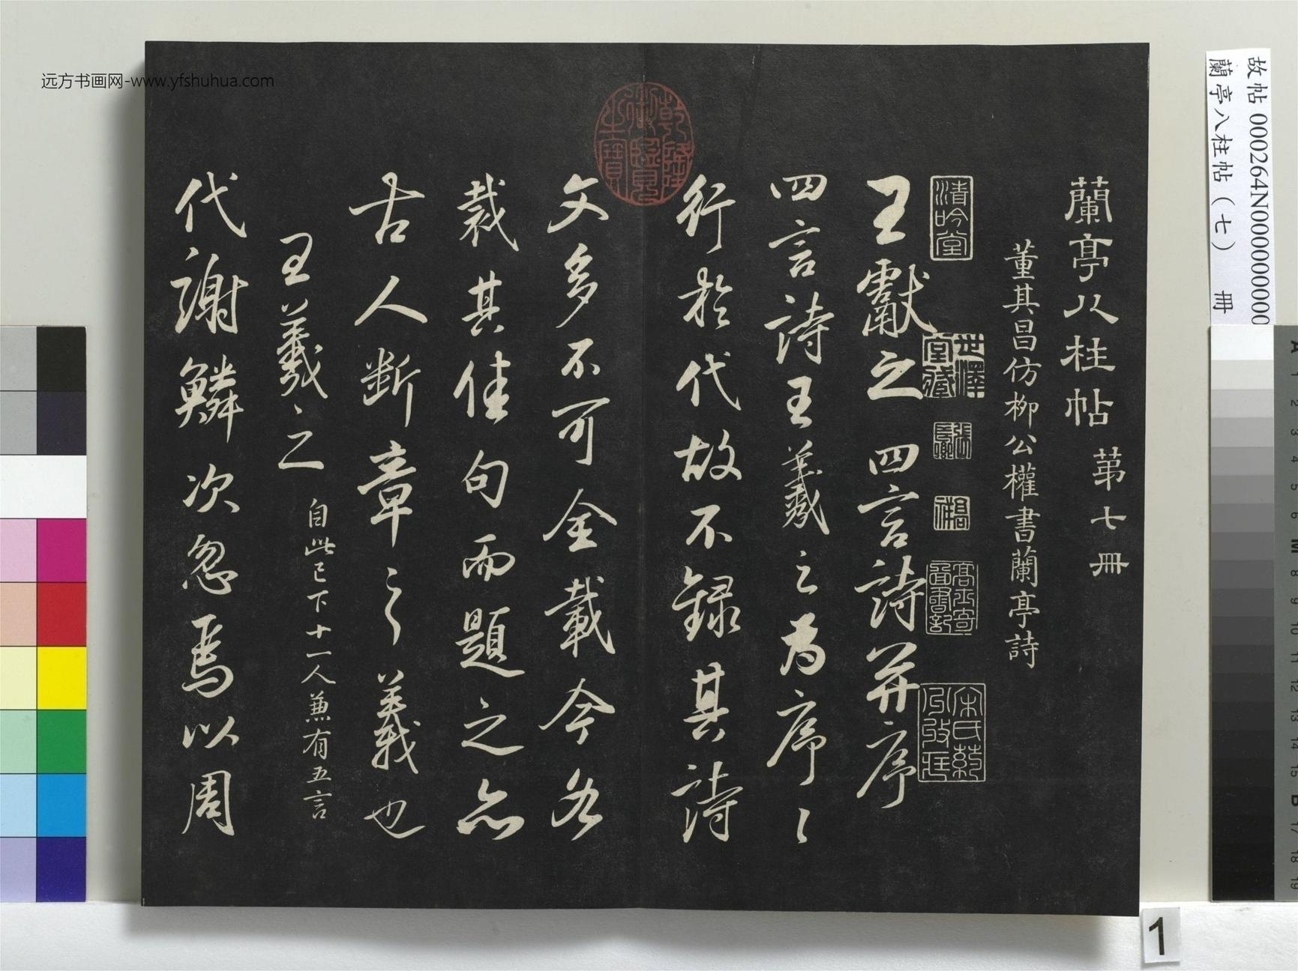 蘭亭八柱帖 第七冊
董其昌仿柳公權書蘭亭詩
清吟堂
世澤堂藏
高士奇圖書記
王獻之四言詩并序
四言詩王羲之為序〻
行於代故不錄其詩
文多不可全載今各
裁其佳句而題之亦
古人斷章之義也
王羲之 自此已下十一人兼有五言
代謝鱗次忽焉以周
乾隆御覽之寶
远方书画网-www.yfshuhua.com
故帖 000264N000000000
蘭亭八柱帖(七) 冊
1